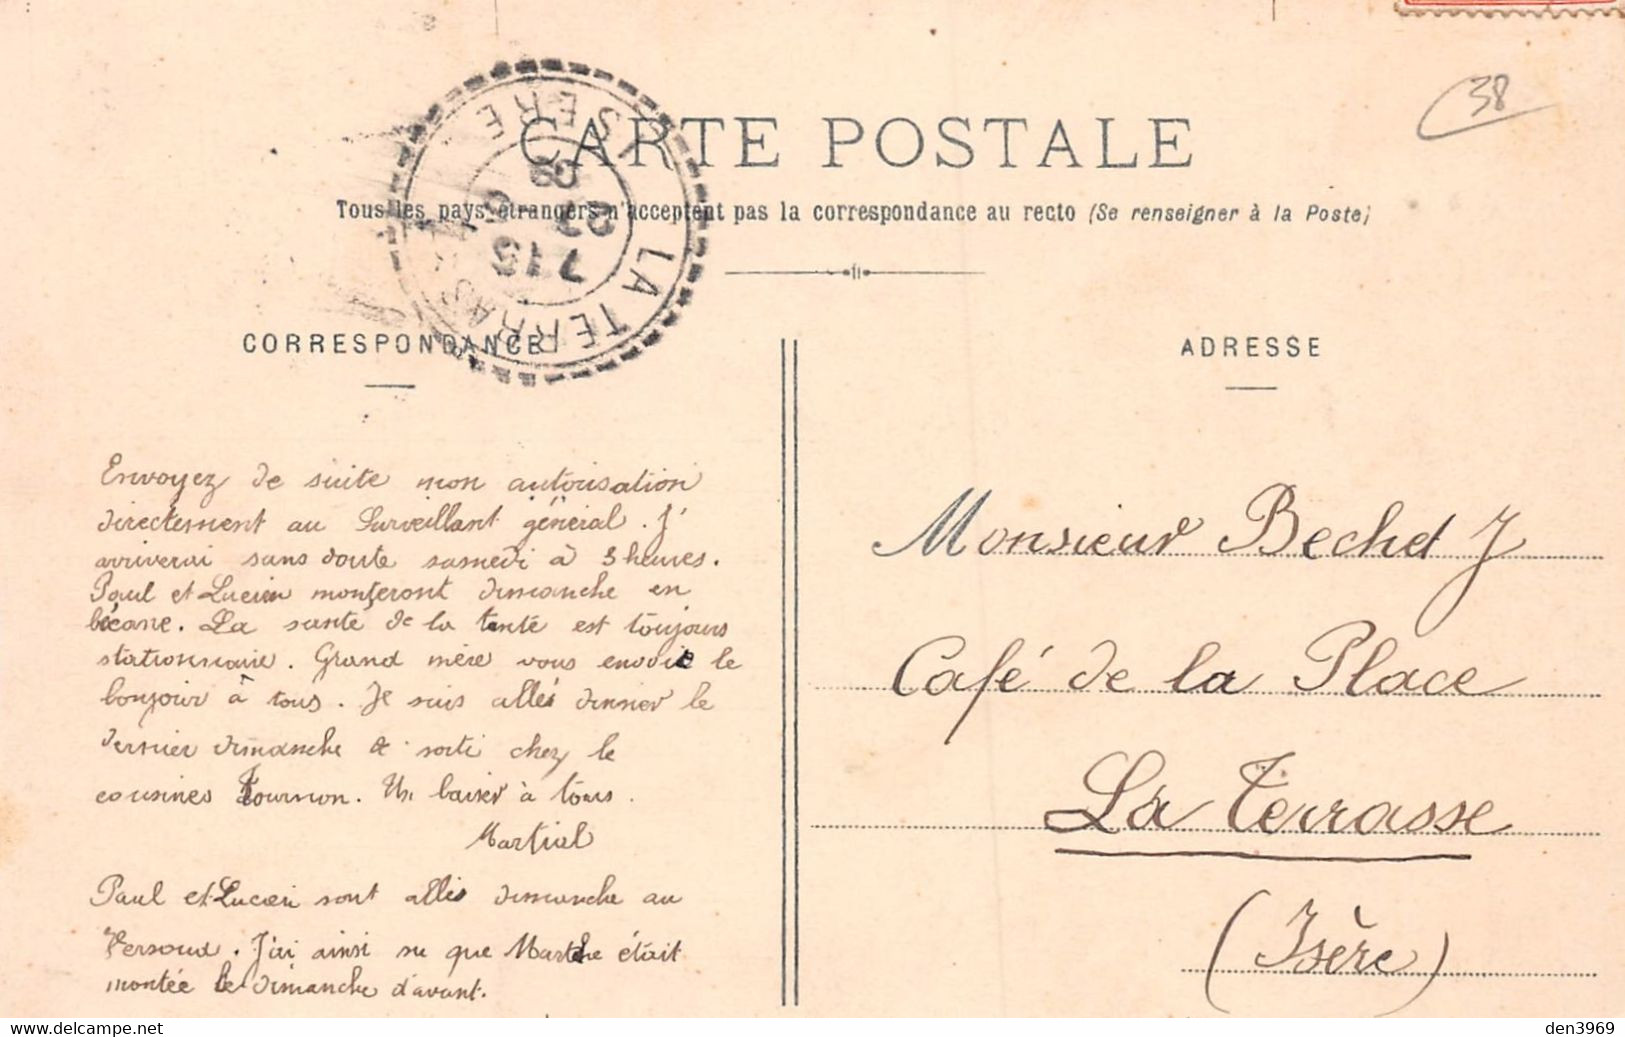 38
CARTE POSTALE
Tous les pays étrangers n'acceptent pas la correspondance au recto (Se renseigner à la Poste)
LA TERRASSE
ISERE
CORRESPONDANCE
Envoyez de suite mon autorisation
directement au Surveillant général. J'
arriverai sans doute samedi à 3 heures.
Paul et Lucien monteront dimanche en
bécane. La santé de la tante est toujours
stationnaire. Grand mère vous envoie le
bonjour à tous. Je suis allés dinner le
dernier dimanche de sorti chez le
cousines Tournon. Un baiser à tous.
Martial
Paul et Lucien sont allés dimanche au
Versoud. J'ai ainsi su que Marthe était
montée le dimanche d'avant.
ADRESSE
Monsieur Bechet J
Café de la Place
La Terrasse
(Isère)
www.delcampe.net
den3969